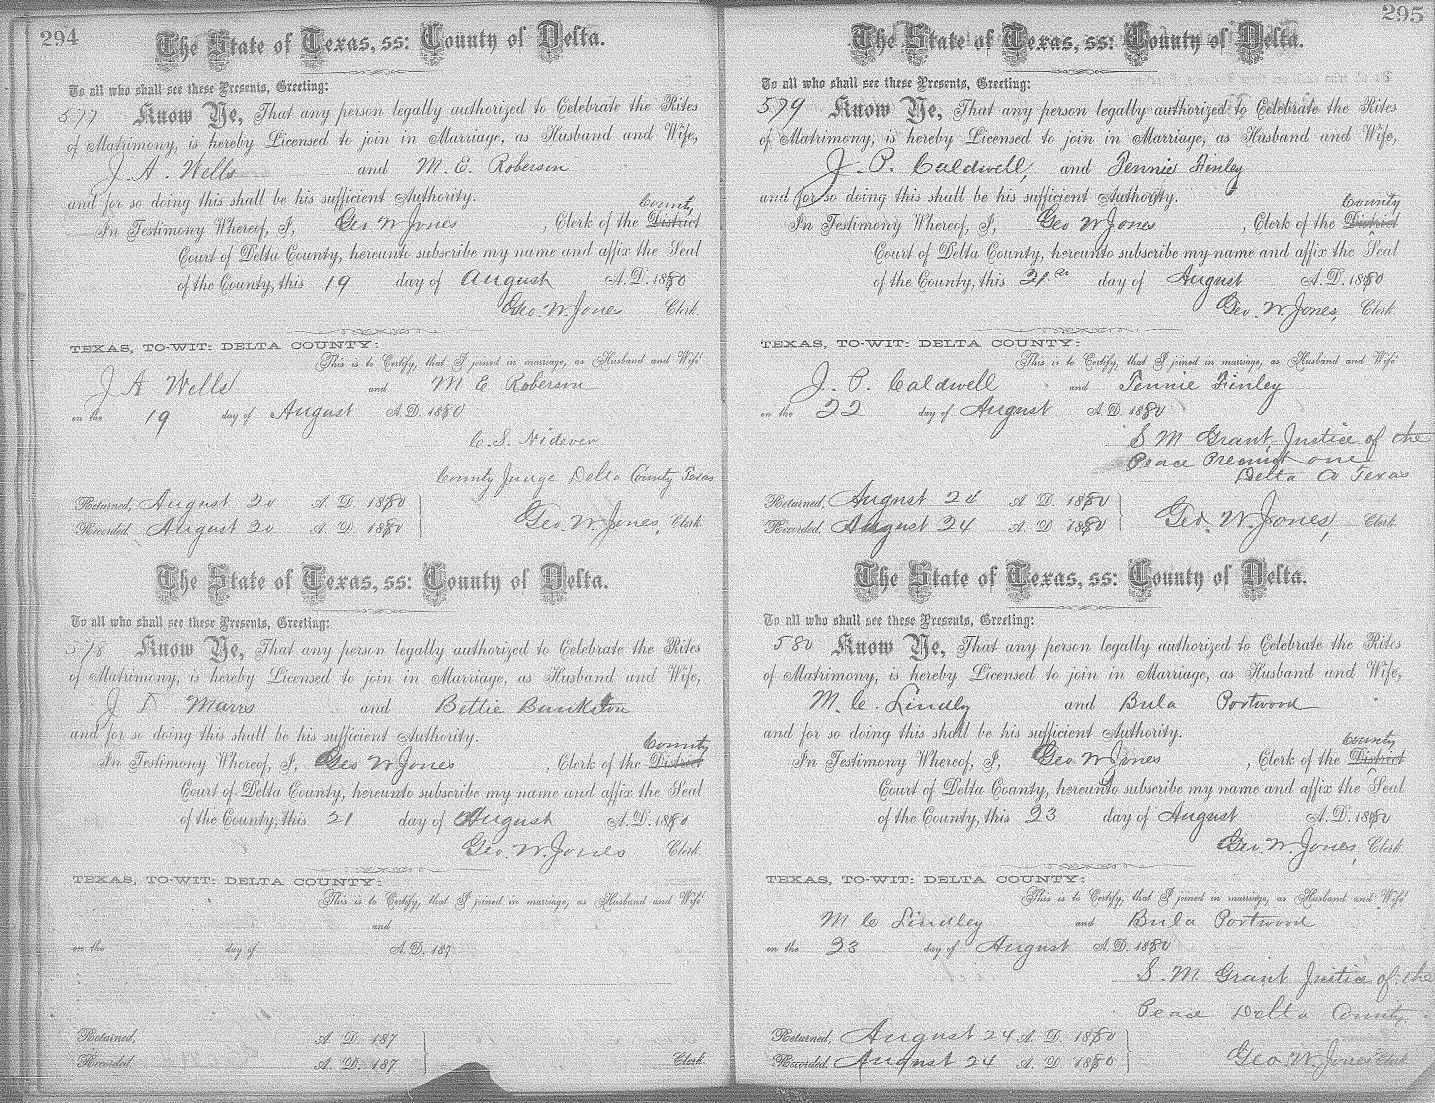 294
The State of Texas, ss: County of Delta.
To all who shall see these Presents, Greeting:
577 Know Ye, That any person legally authorized to Celebrate the Rites
of Matrimony, is hereby Licensed to join in Marriage, as Husband and Wife,
J. A. Wells and M. E. Roberson
and for so doing this shall be his sufficient Authority.
County
In Testimony Whereof, I, Geo W Jones, Clerk of the District
Court of Delta County, hereunto subscribe my name and affix the Seal
of the County, this 19 day of August A.D. 1880
Geo. W. Jones Clerk.
TEXAS, TO-WIT: DELTA COUNTY:
This is to Certify, that I joined in marriage, as Husband and Wife
J A Wells and M E Roberson
on the 19 day of August A.D. 1880
C. S. Nidever
County Judge Delta County Texas
Returned, August 20 A. D. 1880
Recorded, August 20 A. D. 1880 Geo. W. Jones, Clerk.
The State of Texas, ss: County of Delta.
To all who shall see these Presents, Greeting:
578 Know Ye, That any person legally authorized to Celebrate the Rites
of Matrimony, is hereby Licensed to join in Marriage, as Husband and Wife,
J D Marrs and Bettie Bankston
and for so doing this shall be his sufficient Authority.
County
In Testimony Whereof, I, Geo W Jones, Clerk of the District
Court of Delta County, hereunto subscribe my name and affix the Seal
of the County, this 21 day of August A.D. 1880
Geo. W. Jones Clerk.
TEXAS, TO-WIT: DELTA COUNTY:
This is to Certify, that I joined in marriage, as Husband and Wife
and
on the day of A.D. 187
Returned, A. D. 187
Recorded, A. D. 187 Clerk.
295
The State of Texas, ss: County of Delta.
To all who shall see these Presents, Greeting:
579 Know Ye, That any person legally authorized to Celebrate the Rites
of Matrimony, is hereby Licensed to join in Marriage, as Husband and Wife,
J. P. Caldwell, and Jennie Finley
and for so doing this shall be his sufficient Authority.
County
In Testimony Whereof, I, Geo W Jones, Clerk of the District
Court of Delta County, hereunto subscribe my name and affix the Seal
of the County, this 21st day of August A.D. 1880
Geo. W. Jones, Clerk.
TEXAS, TO-WIT: DELTA COUNTY:
This is to Certify, that I joined in marriage, as Husband and Wife
J. P. Caldwell and Jennie Finley
on the 22 day of August A.D. 1880
S M Grant, Justice of the
Peace Precinct one
Delta Co Texas
Returned, August 24 A. D. 1880
Recorded, August 24 A. D. 1880 Geo. W. Jones, Clerk.
The State of Texas, ss: County of Delta.
To all who shall see these Presents, Greeting:
580 Know Ye, That any person legally authorized to Celebrate the Rites
of Matrimony, is hereby Licensed to join in Marriage, as Husband and Wife,
M. C. Lindly and Bula Portwood
and for so doing this shall be his sufficient Authority.
County
In Testimony Whereof, I, Geo W Jones, Clerk of the District
Court of Delta County, hereunto subscribe my name and affix the Seal
of the County, this 23 day of August A.D. 1880
Geo. W. Jones, Clerk
TEXAS, TO-WIT: DELTA COUNTY:
This is to Certify, that I joined in marriage, as Husband and Wife
M C Lindley and Bula Portwood
on the 23 day of August A.D. 1880
S. M Grant Justice of the
Peace Delta County
Returned, August 24 A. D. 1880
Recorded, August 24 A. D. 1880 Geo. W. Jones Clerk